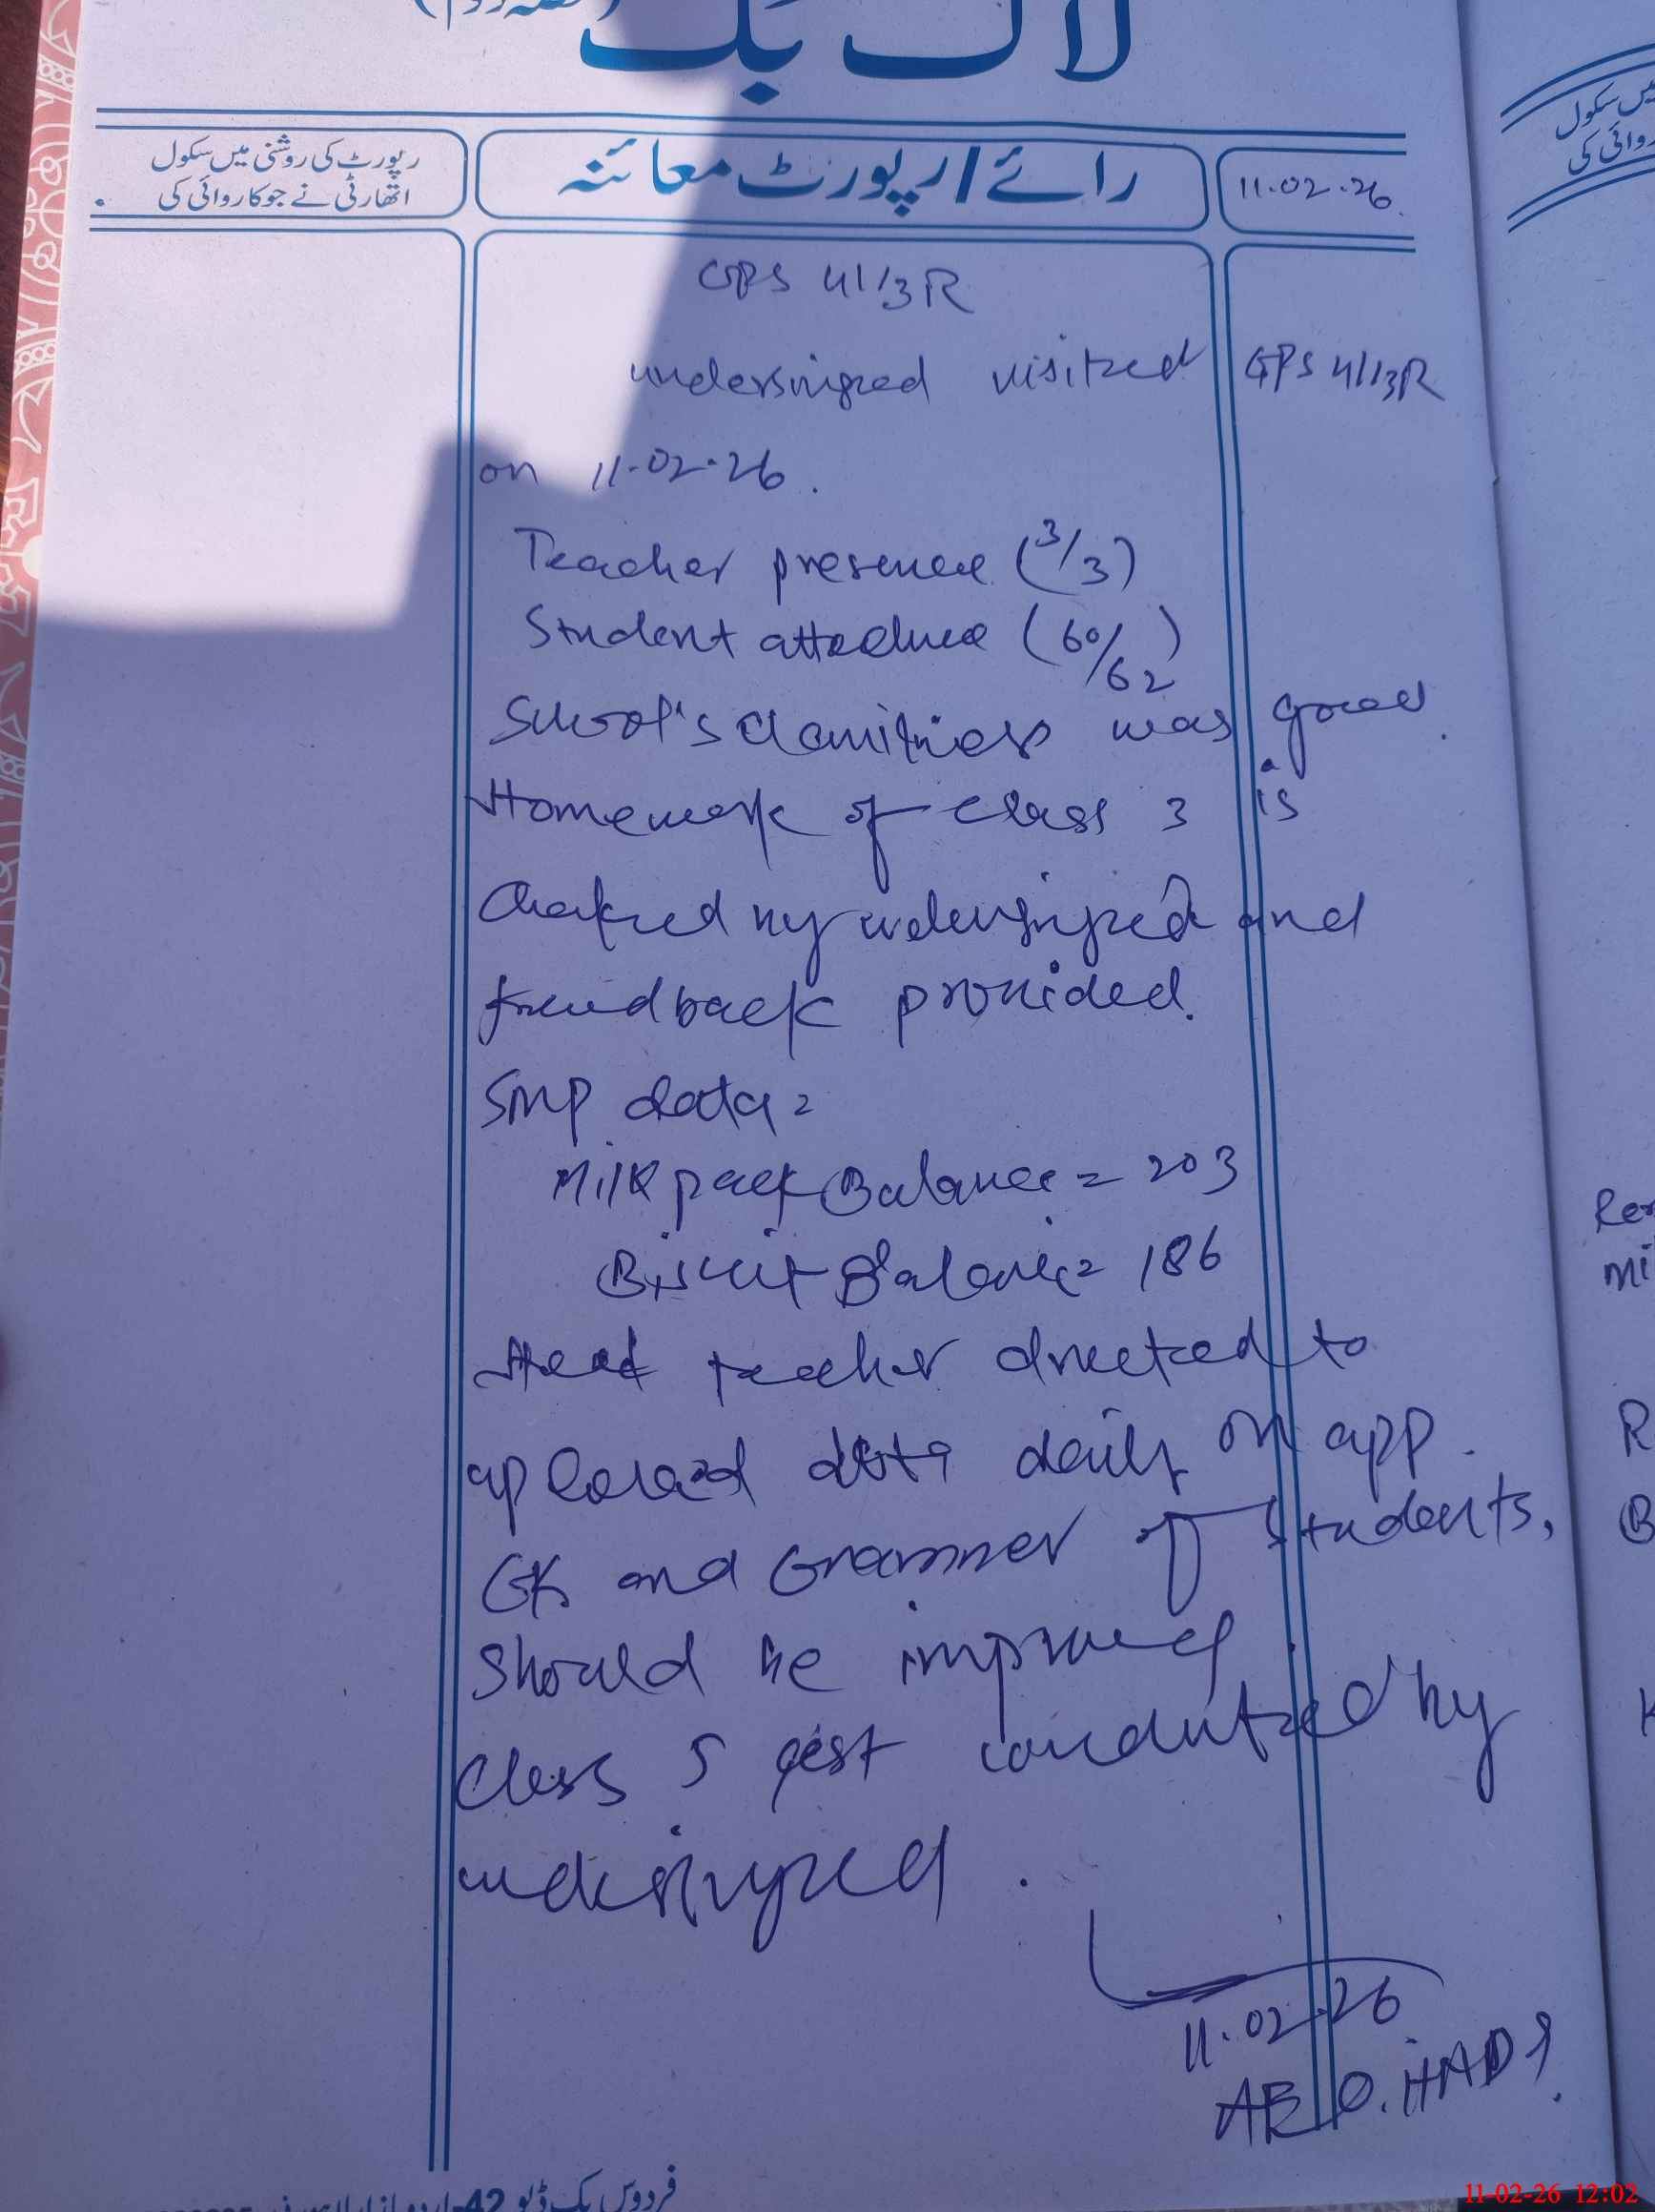 لاگ بک
رپورٹ کی روشنی میں سکول
اتھارٹی نے جو کاروائی کی
رائے / رپورٹ معائنہ
11.02.26
GPS 41/3R
undersingned visited GPS 41/3R
on 11.02.26.
Teacher presence (3/3)
Student attednce (60/62)
School's clanitiness was good.
Homework of class 3 is
Checked by undersigned and
feedback provided.
SMP data =
Milk pack Balance = 203
Biscuit Balance = 186
Head teacher directed to
upload data daily on app.
GK and Grammer of students,
should be improved
Class 5 test conducted by
undersigned.
11.02.26
AEO. HADI
میں سکول
روائی کی
Mi
R
B
فردوس بک ڈپو 42-اردو بازار لاہور
11-02-26 12:02